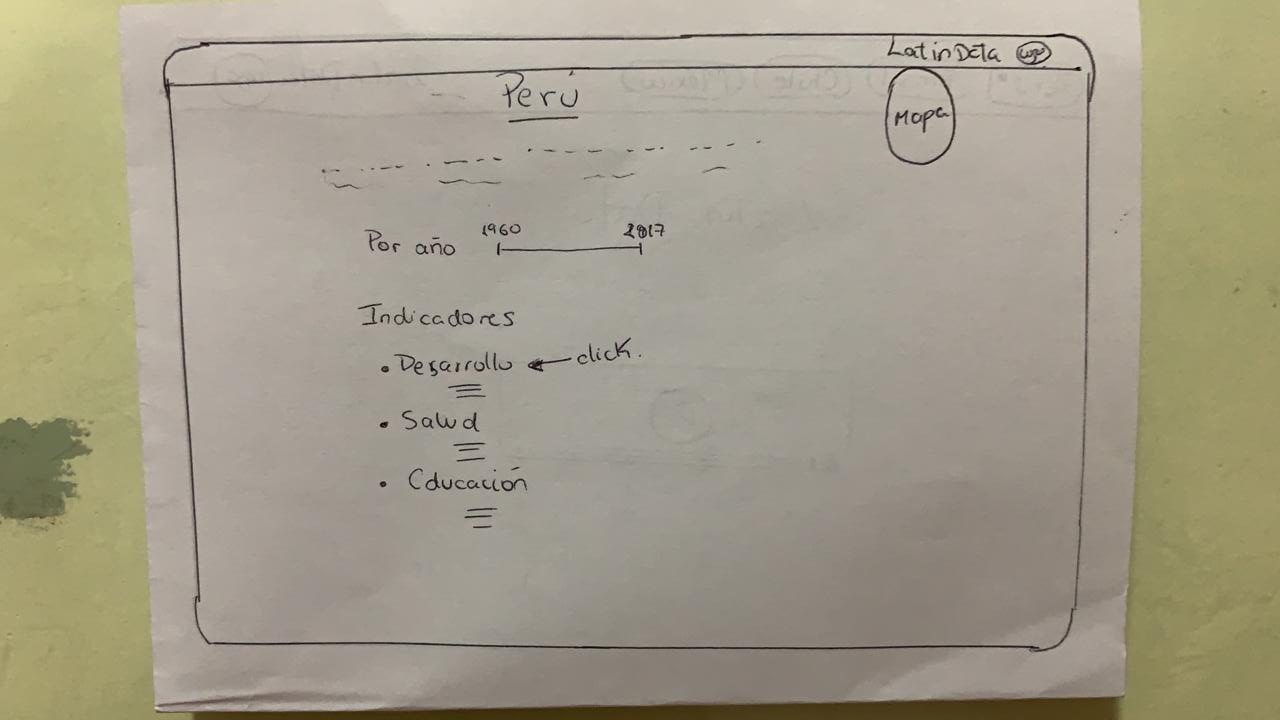 LatinData Logo
Perú
Mapa
Por año 1960 2017
Indicadores
• Desarrollo ← click.
• Salud
• Educación